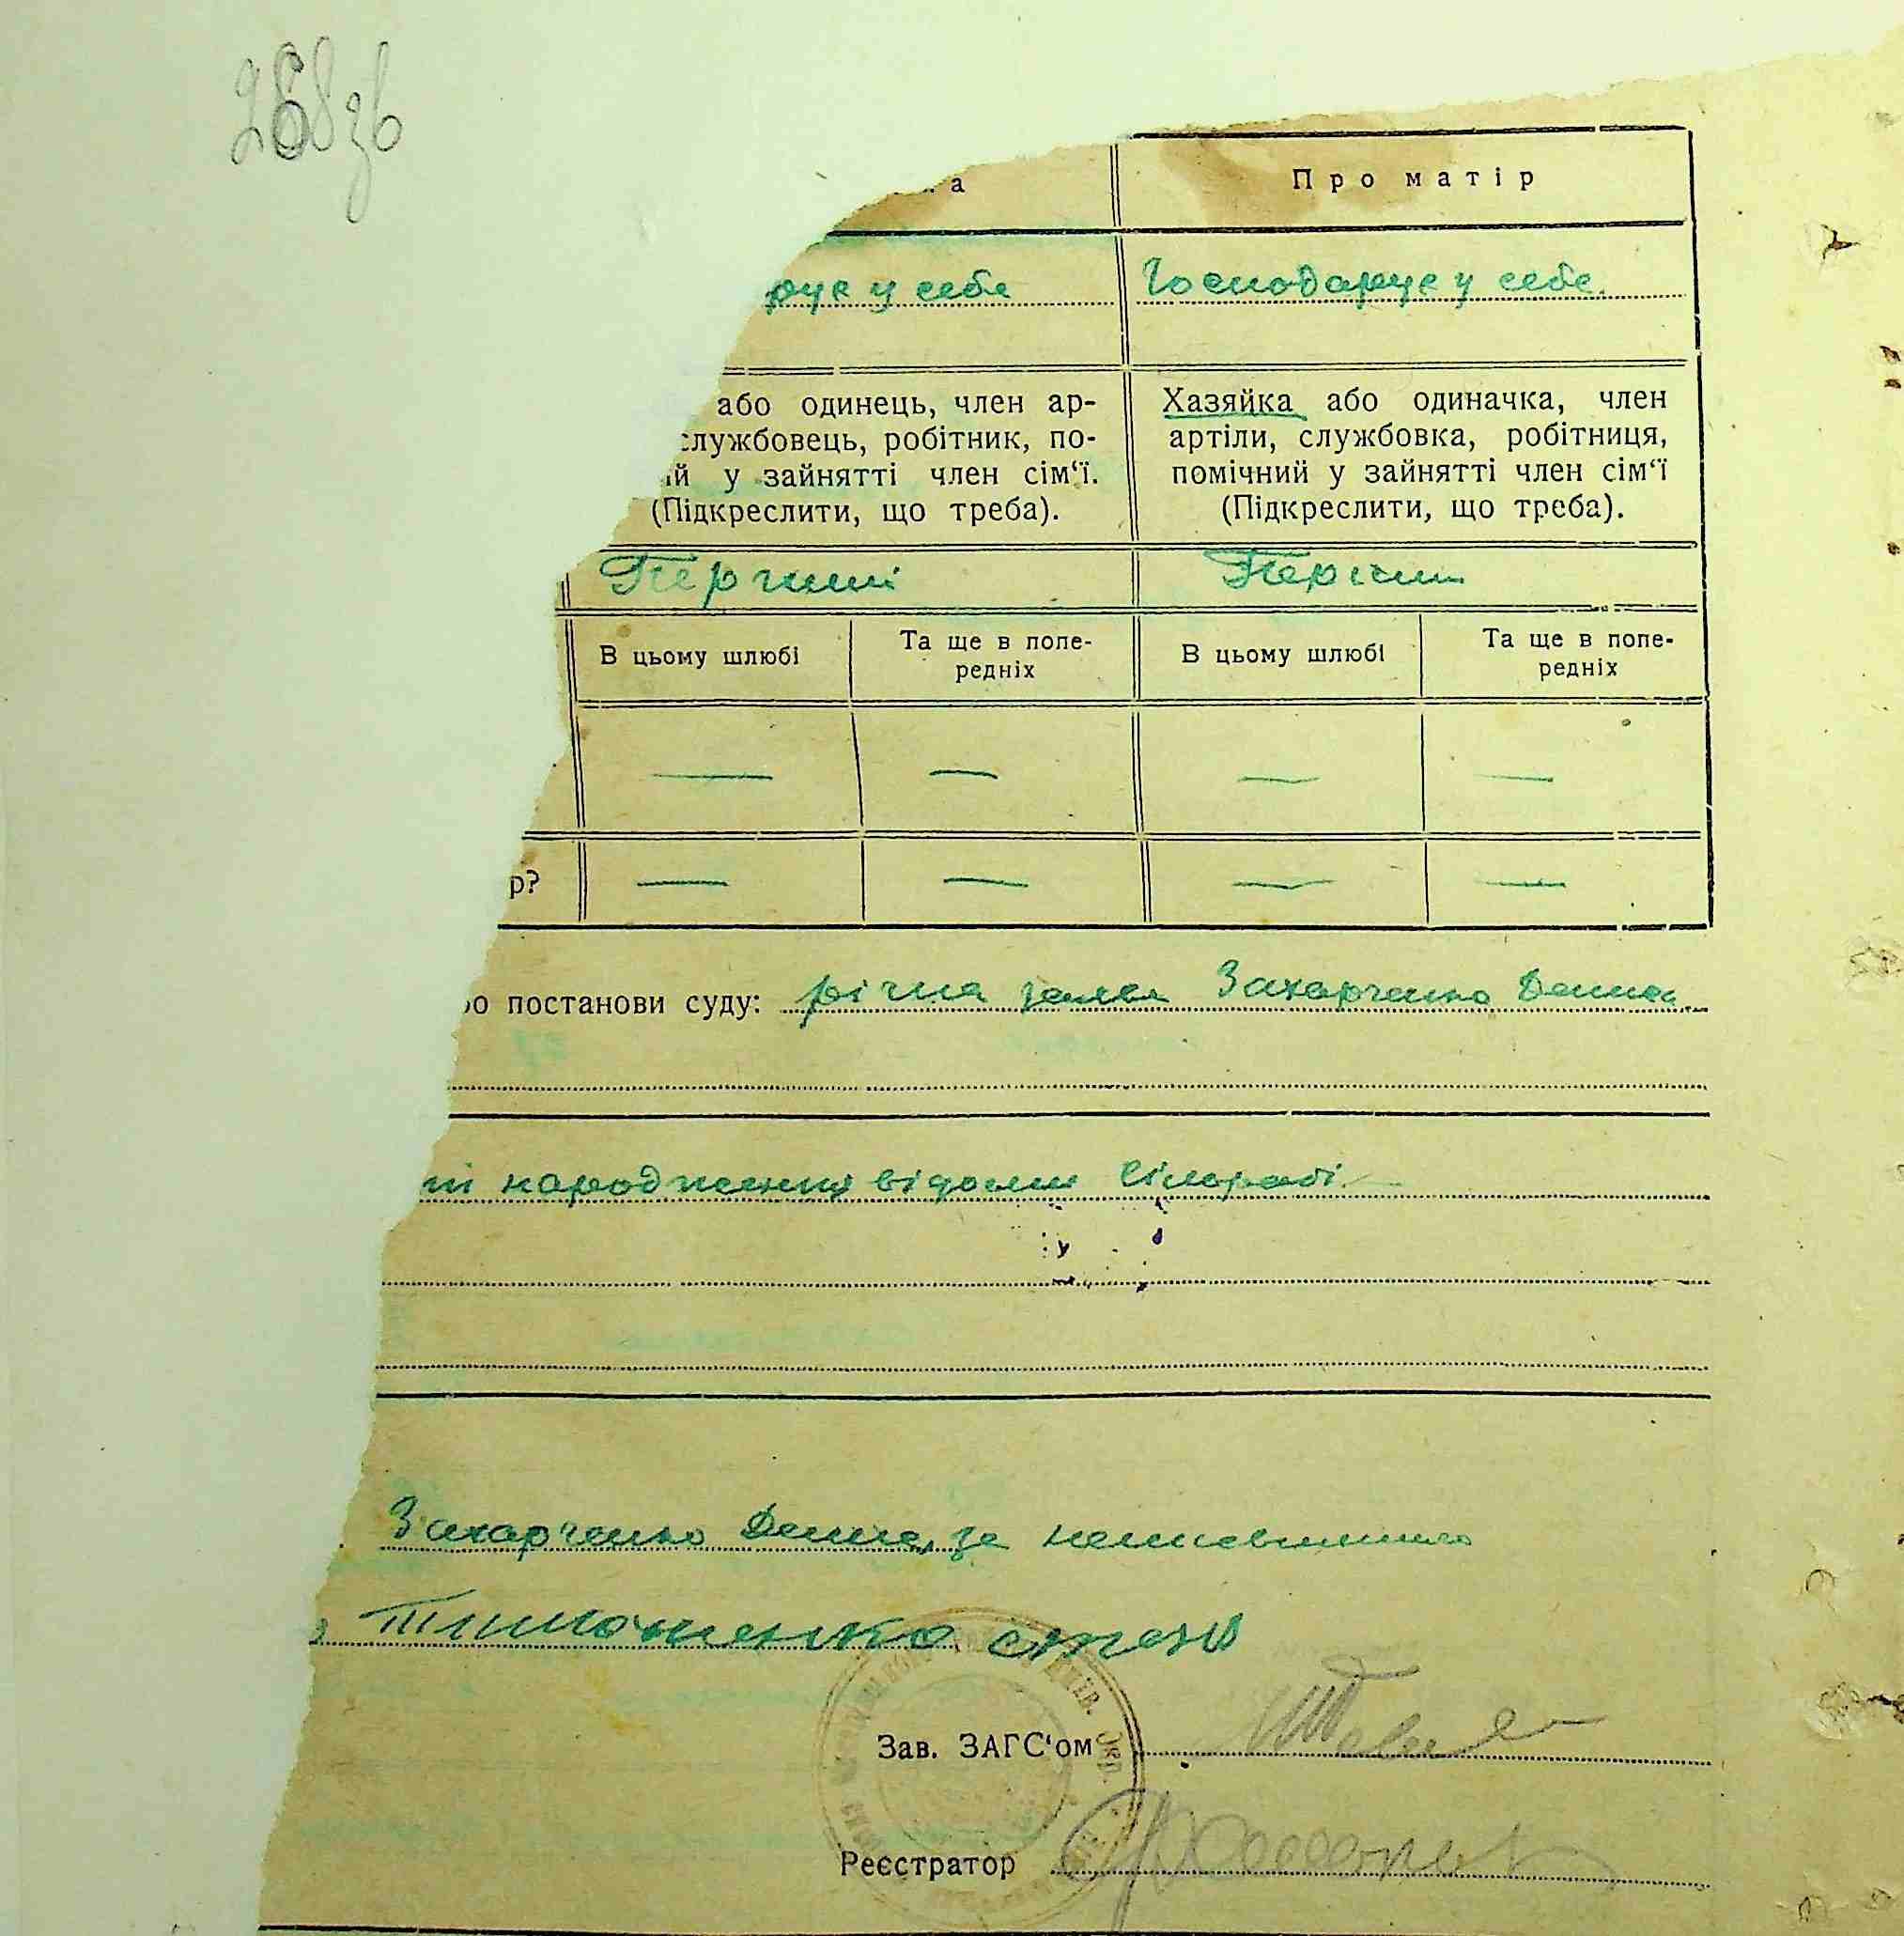 268 зв
а
Про матір
рує у себе
Господарує у себе.
або одинець, член ар-
службовець, робітник, по-
ій у зайнятті член сім‘ї.
(Підкреслити, що треба).
Хазяйка або одиначка, член
артіли, службовка, робітниця,
помічний у зайнятті член сім‘ї
(Підкреслити, що треба).
Перший
Перший
В цьому шлюбі
Та ще в попе-
редніх
В цьому шлюбі
Та ще в попе-
редніх
р?
о постанови суду: річна заява Захарченко Дениса
народження відомий Сільраді
Захарченко Денис, за
Тимошенко
Зав. ЗАГС‘ом
Реєстратор